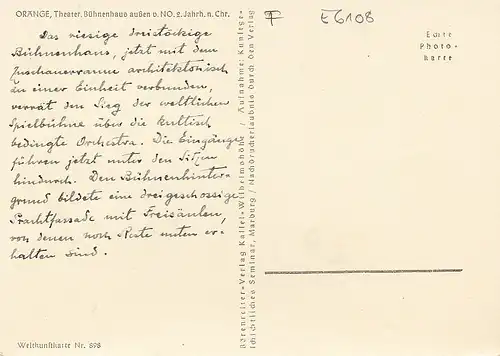 ORANGE, Theater. Bühnenhaus außen v. NO. 2. Jahrh. n. Chr.
Das riesige dreistöckige
Bühnenhaus, jetzt mit dem
Zuschauerraume architektonisch
zu einer Einheit verbunden,
verrät den Sieg der weltlichen
Spielbühne über die kultisch
bedingte Orchestra. Die Eingänge
führen jetzt unter den Sitzen
hindurch. Den Bühnenhinter-
grund bildete eine dreigeschossige
Prachtfassade mit Freisäulen,
von denen noch Reste unten er-
halten sind.
Weltkunstkarte Nr. 898
Bärenreiter-Verlag Kassel-Wilhelmshöhe / Aufnahme: Kunstge-
schichtliches Seminar, Marburg / Nachdruckerlaubnis durch den Verlag
F E6108
Echte
Photo-
karte